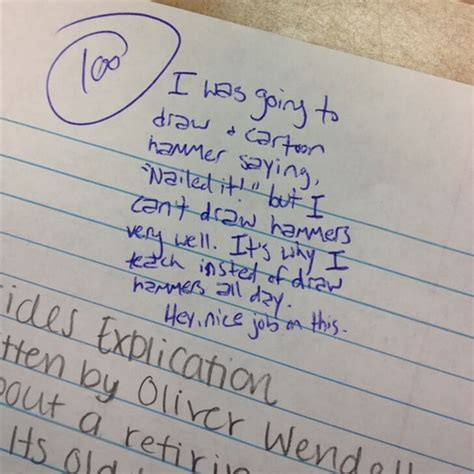 100
I was going to
draw a cartoon
hammer saying,
"Nailed it!" but I
can't draw hammers
very well. It's why I
teach insted of draw
hammers all day.
Hey, nice job on this.
ides Explication
tten by Oliver Wendell
bout a retirin
Its old